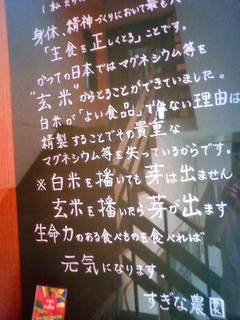 身体、精神づくりにおいて最も大
「主食を正しくとる」ことです。
かつての日本ではマグネシウム等を
"玄米"からとることができていました。
白米が「よい食品」でない理由は
精製することでその貴重な
マグネシウム等を失っているからです。
※白米を播いても芽は出ません
玄米を播いたら芽が出ます
生命力のある食べものを食べれば
元気になります。
すぎな農園